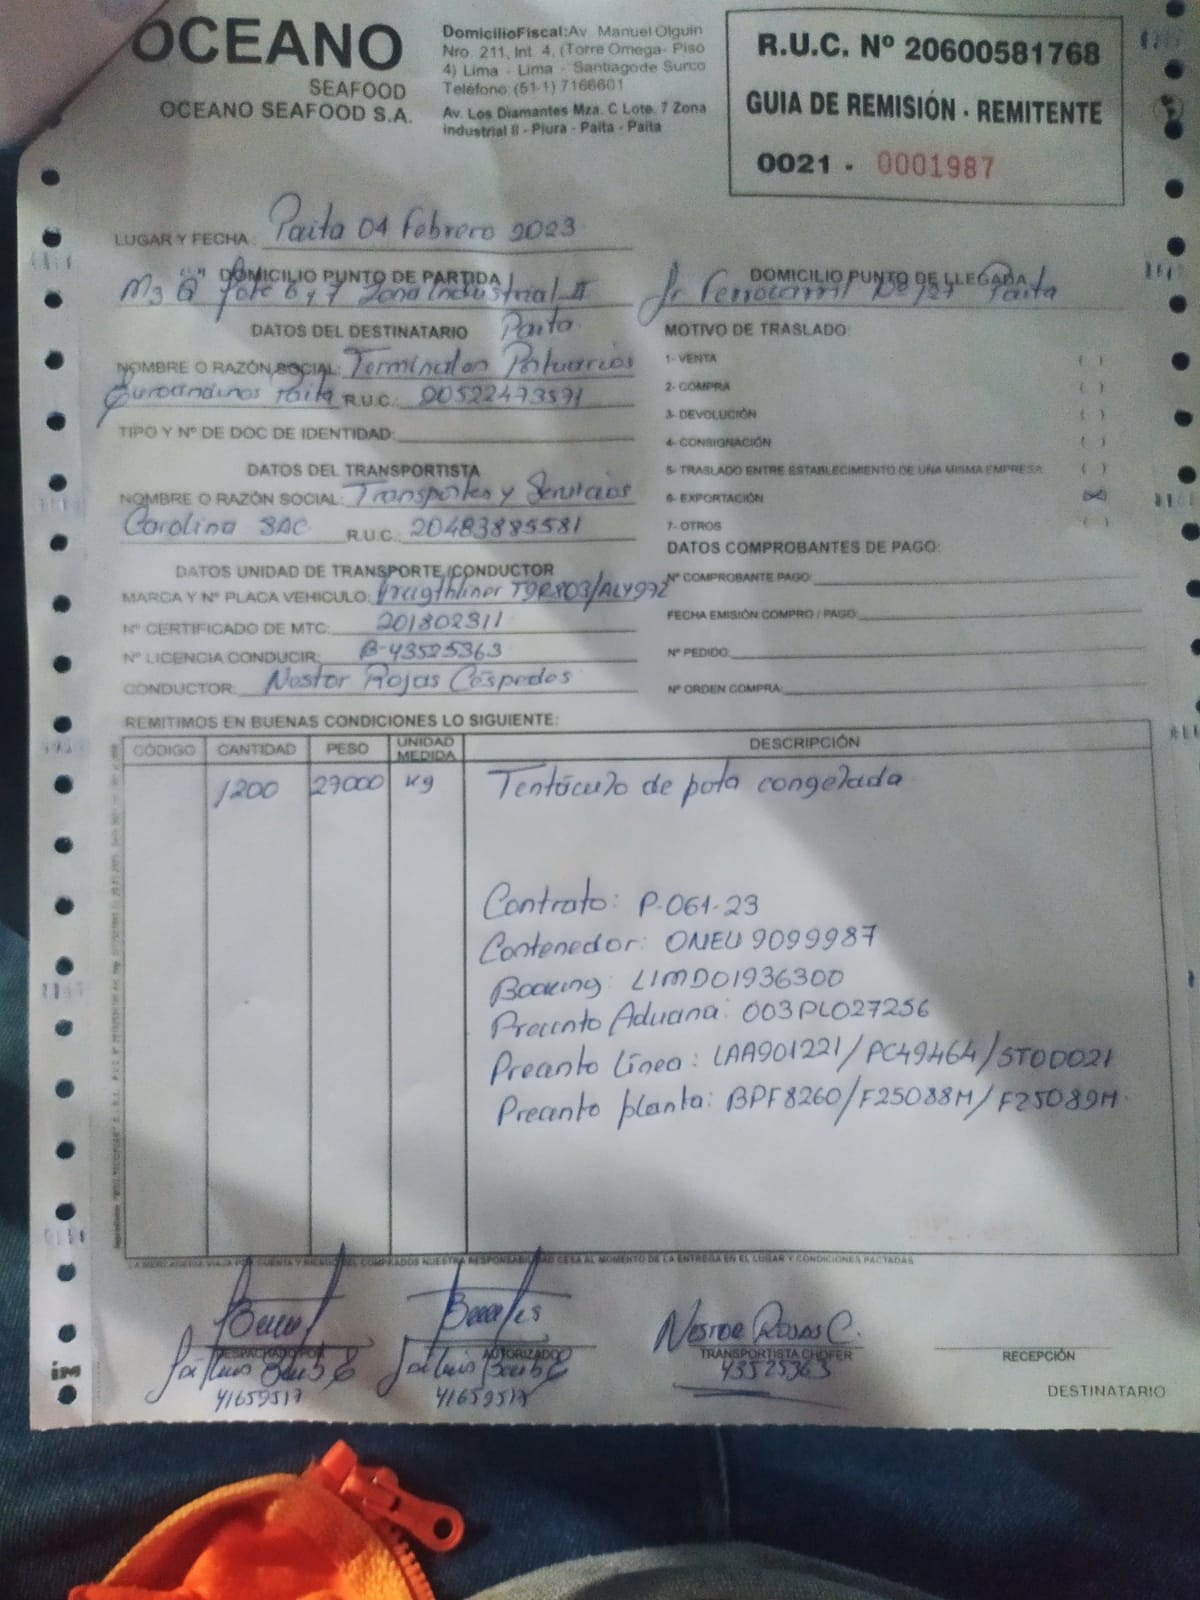 OCEANO
SEAFOOD
OCEANO SEAFOOD S.A.
Domicilio Fiscal: Av. Manuel Olguin
Nro. 211, Int. 4, (Torre Omega- Piso
4) Lima - Lima - Santiago de Surco
Teléfono: (51-1) 7166601
Av. Los Diamantes Mza. C Lote. 7 Zona
industrial II - Piura - Paita - Paita
R.U.C. Nº 20600581768
GUIA DE REMISIÓN - REMITENTE
0021 - 0001987
LUGAR Y FECHA: Paita 04 Febrero 2023
DOMICILIO PUNTO DE PARTIDA
Mz "Q" lote 6 y 7 Zona Industrial II
Paita
DOMICILIO PUNTO DE LLEGADA
Jr Ferrocarril Nº 127 Paita
DATOS DEL DESTINATARIO
NOMBRE O RAZÓN SOCIAL: Terminales Portuarios
Euroandinos Paita R.U.C.: 00522473571
TIPO Y Nº DE DOC DE IDENTIDAD:
DATOS DEL TRANSPORTISTA
NOMBRE O RAZÓN SOCIAL: Transportes y Servicios
Carolina SAC R.U.C.: 20483885581
DATOS UNIDAD DE TRANSPORTE /CONDUCTOR
MARCA Y Nº PLACA VEHICULO: Freigthliner T9R803/ALY972
Nº CERTIFICADO DE MTC: 201802311
Nº LICENCIA CONDUCIR: B-43525363
CONDUCTOR: Nestor Rojas Céspedes
MOTIVO DE TRASLADO:
1- VENTA ( )
2- COMPRA ( )
3- DEVOLUCIÓN ( )
4- CONSIGNACIÓN ( )
5- TRASLADO ENTRE ESTABLECIMIENTO DE UNA MISMA EMPRESA ( )
6- EXPORTACIÓN (X)
7- OTROS ( )
DATOS COMPROBANTES DE PAGO:
Nº COMPROBANTE PAGO:
FECHA EMISIÓN COMPRO / PAGO:
Nº PEDIDO:
Nº ORDEN COMPRA:
REMITIMOS EN BUENAS CONDICIONES LO SIGUIENTE:
CÓDIGO CANTIDAD PESO UNIDAD MEDIDA DESCRIPCIÓN
1200 27000 kg Tentáculo de pota congelada
Contrato: P-061-23
Contenedor: ONEU 9099987
Booking: LIMD01936300
Precinto Aduana: 003PL027256
Precinto Línea: LAA901221/PC49464/ST00021
Precinto planta: BPF8260/F25088M/F25089M
LA MERCADERIA VIAJA POR CUENTA Y RIESGO DEL COMPRADOR NUESTRA RESPONSABILIDAD CESA AL MOMENTO DE LA ENTREGA EN EL LUGAR Y CONDICIONES PACTADAS
DESPACHADO POR
41659517
AUTORIZADO
41659517
Nestor Rojas C.
TRANSPORTISTA CHOFER
43525363
RECEPCIÓN
DESTINATARIO
im